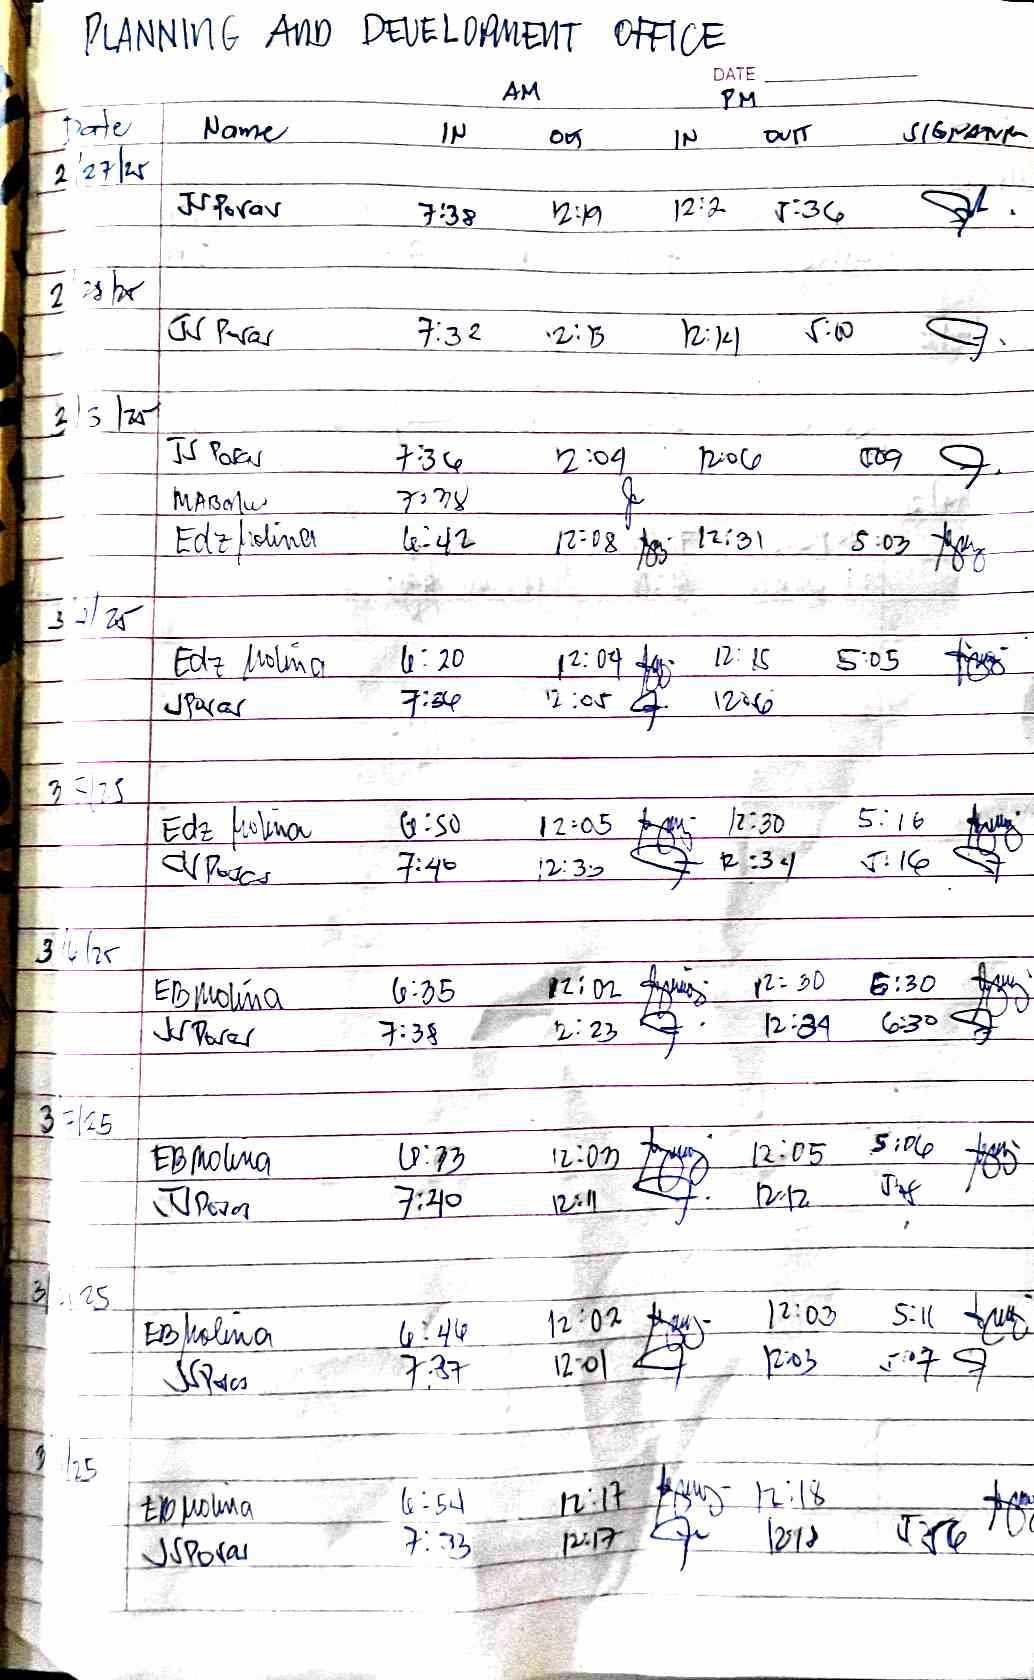 PLANNING AND DEVELOPMENT OFFICE
DATE
AM PM
Date Name IN OUT IN OUT SIGNATURE
2/27/25
JS Poras 7:38 12:19 12:2 5:36
2 28/25
JS Poras 7:32 12:13 12:14 5:10
2/3/25
JS Poras 7:36 12:04 12:06 5:09
7:38
Edz Molina 6:42 12:08 12:31 5:03
3 /25
Edz Molina 6:20 12:04 12:15 5:05
JSPoras 7:36 12:05 12:06
3 /25
Edz Molina 6:50 12:05 12:30 5:16
JSPoras 7:40 12:33 12:34 5:16
3/6/25
EBMolina 6:35 12:02 12:30 6:30
JSPoras 7:38 12:23 12:24 6:30
3 /25
EBMolina 6:33 12:03 12:05 5:06
JSPoras 7:40 12:11 12:12
3/ 25
EBMolina 6:46 12:02 12:03 5:11
JSPoras 7:37 12:01 12:03 5:07
3 /25
EBMolina 6:54 12:17 12:18
JSPoras 7:33 12:17 12:18 5:56